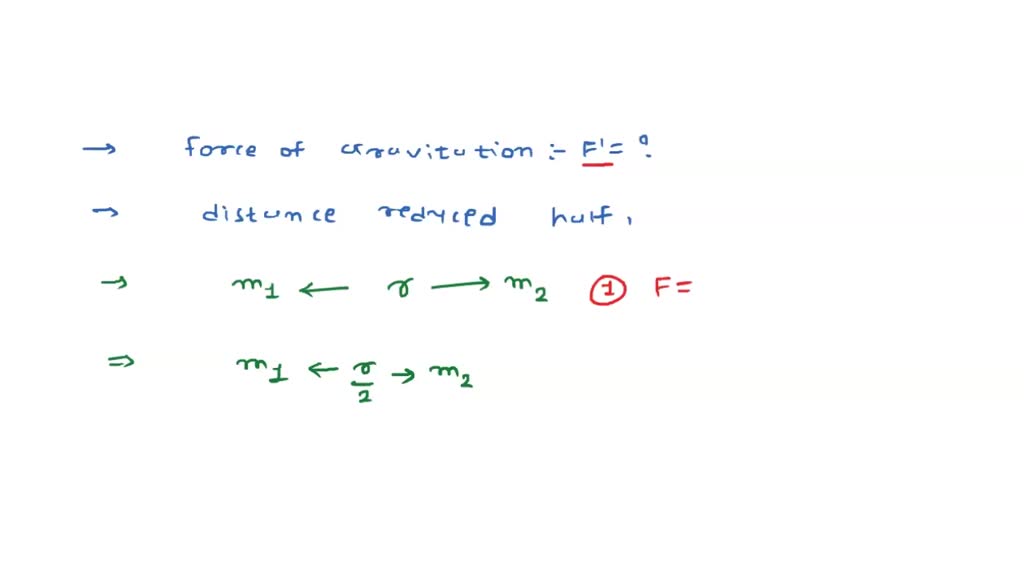 → Force of Gravitation :- F' = ?
→ distance reduced half,
→ m1 ← r → m2 ① F =
⇒ m1 ← r/2 → m2